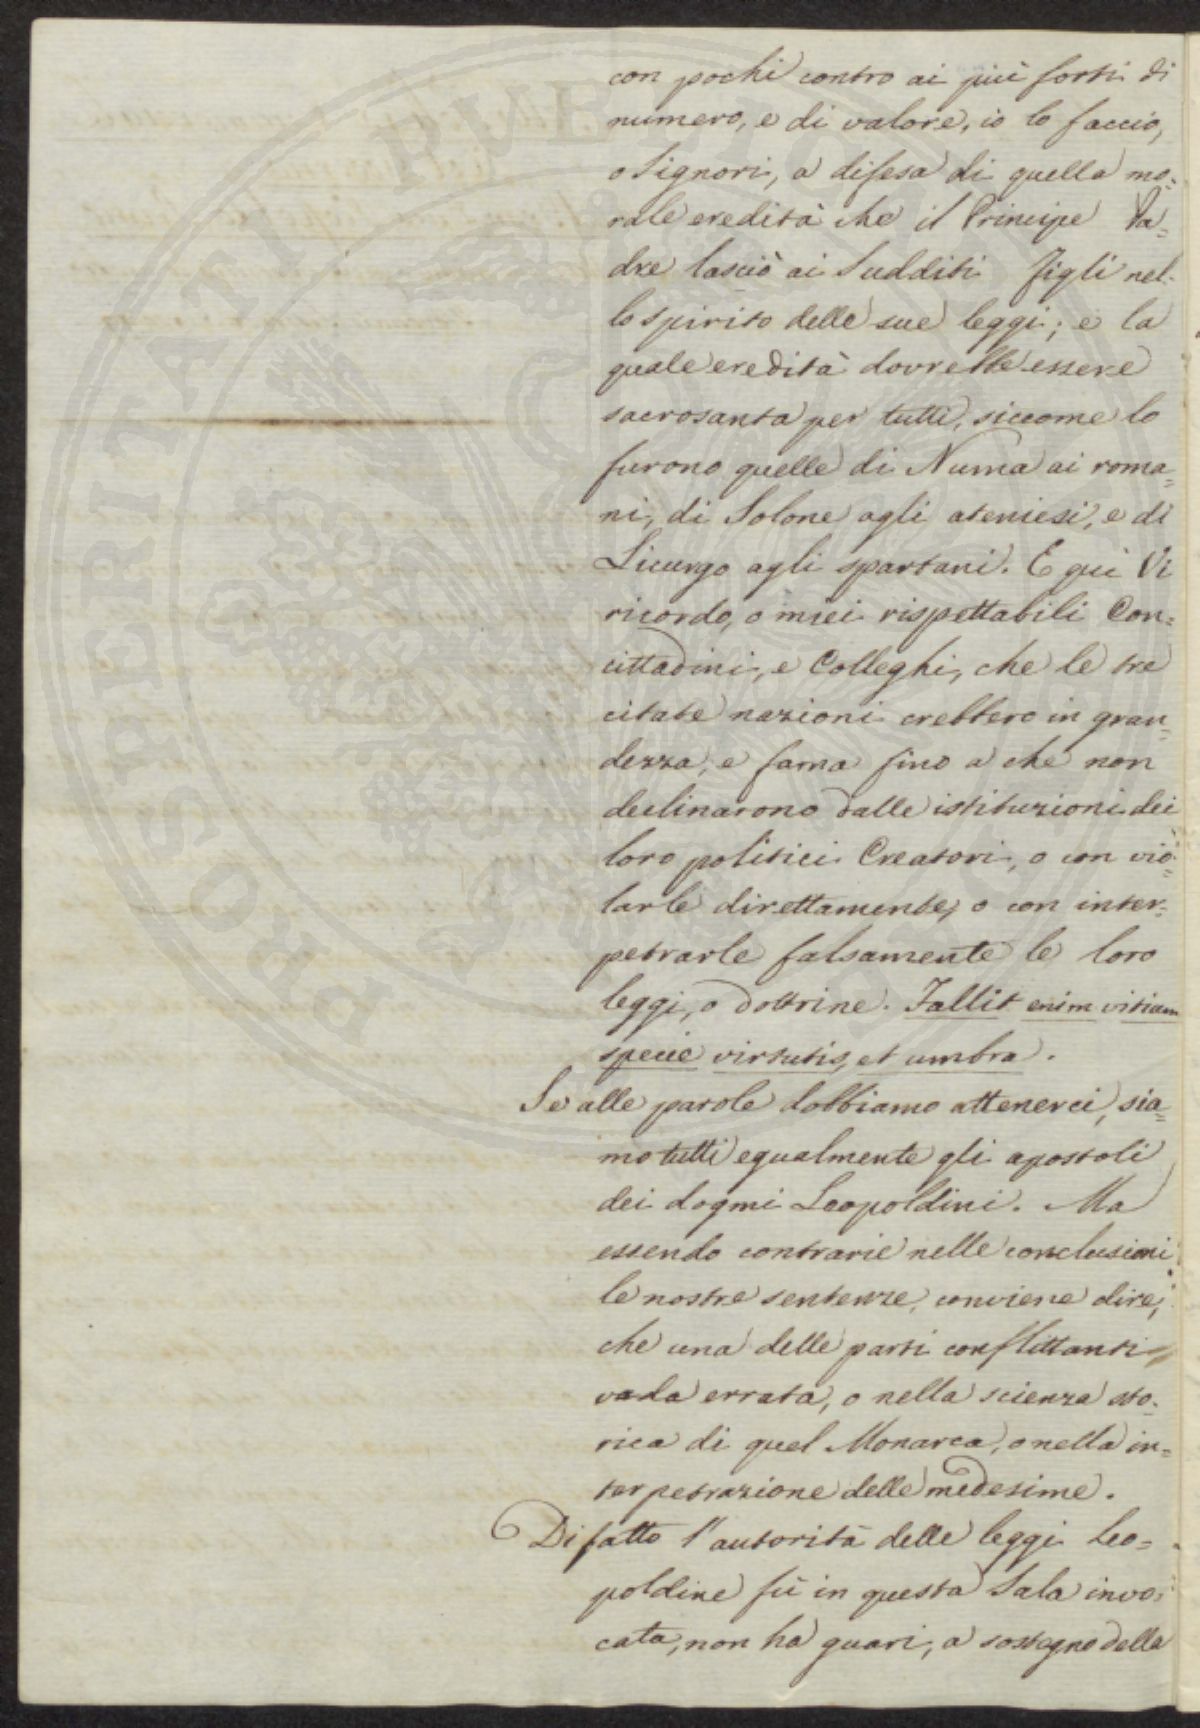 con pochi contro ai più forti di
numero, e di valore, io lo faccio,
o Signori, a difesa di quella mo=
rale eredità che il Principe Pa=
dre lasciò ai Sudditi Figli nel=
lo spirito delle sue leggi; e la
quale eredità dovrebbe essere
sacrosanta per tutti, siccome lo
furono quelle di Numa ai roma=
ni, di Solone agli ateniesi, e di
Licurgo agli spartani. E qui Vi
ricordo, o miei rispettabili Con=
cittadini, e Colleghi, che le tre
citate nazioni crebbero in gran=
dezza, e fama fino a che non
declinarono dalle istituzioni dei
loro politici Creatori, o con vio=
larle direttamente, o con inter=
petrarle falsamente le loro
leggi, o dottrine. Fallit enim vitium
specie virtutis, et umbra.
Se alle parole dobbiamo attenerci, sia=
mo tutti egualmente gli apostoli
dei dogmi Leopoldini. Ma
essendo contrarie nelle conclusioni
le nostre sentenze, conviene dire,
che una delle parti conflittanti
vada errata, o nella scienza sto=
rica di quel Monarca, o nella in=
terpetrazione delle medesime.
Di fatto l'autorità delle leggi Leo=
poldine fù in questa Sala invo=
cata, non ha guari, a sostegno della
PROSPERITATI PUBLICAE